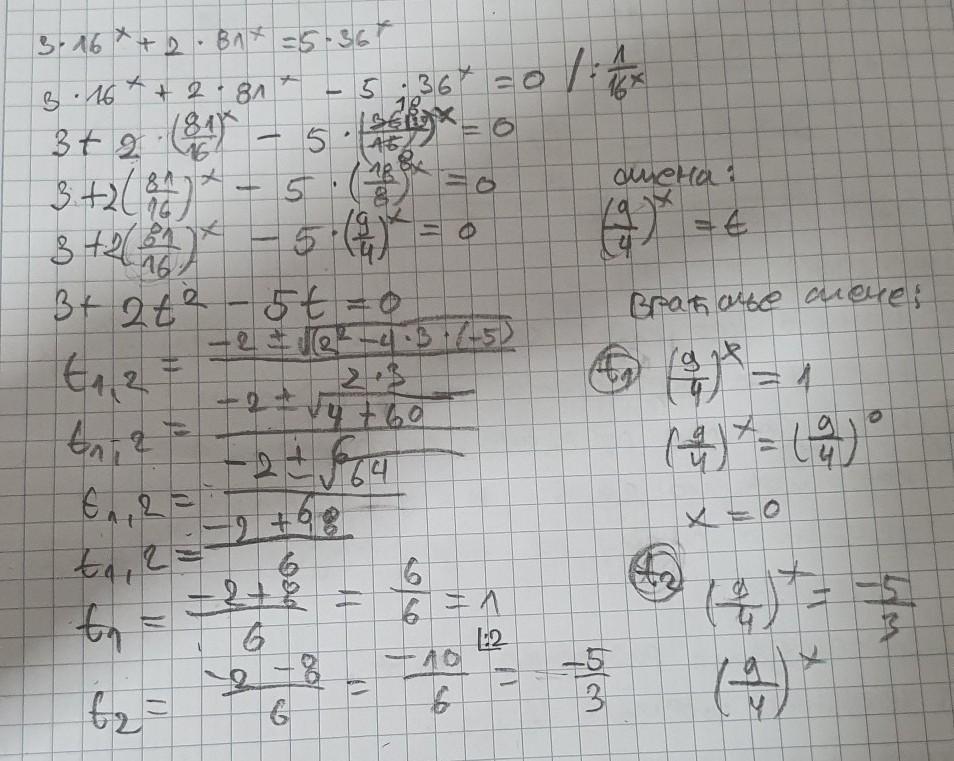 3·16^x + 2·81^x = 5·36^x
3·16^x + 2·81^x - 5·36^x = 0 /: 1/16^x
3 + 2·(81/16)^x - 5·( )^x = 0
3 + 2(81/16)^x - 5·(18/8)^x = 0
3 + 2(81/16)^x - 5·(9/4)^x = 0
3 + 2t² - 5t = 0
t1,2 = (-2 ± √(2² - 4·3·(-5)))/(2·3)
t1,2 = (-2 ± √(4 + 60))/6
t1,2 = (-2 ± √64)/6
t1,2 = (-2 ± 8)/6
t1 = (-2 + 8)/6 = 6/6 = 1
t2 = (-2 - 8)/6 = -10/6 |:2 = -5/3
смена:
(9/4)^x = t
Враћање смене:
t1 (9/4)^x = 1
(9/4)^x = (9/4)^0
x = 0
t2 (9/4)^x = -5/3
(9/4)^x